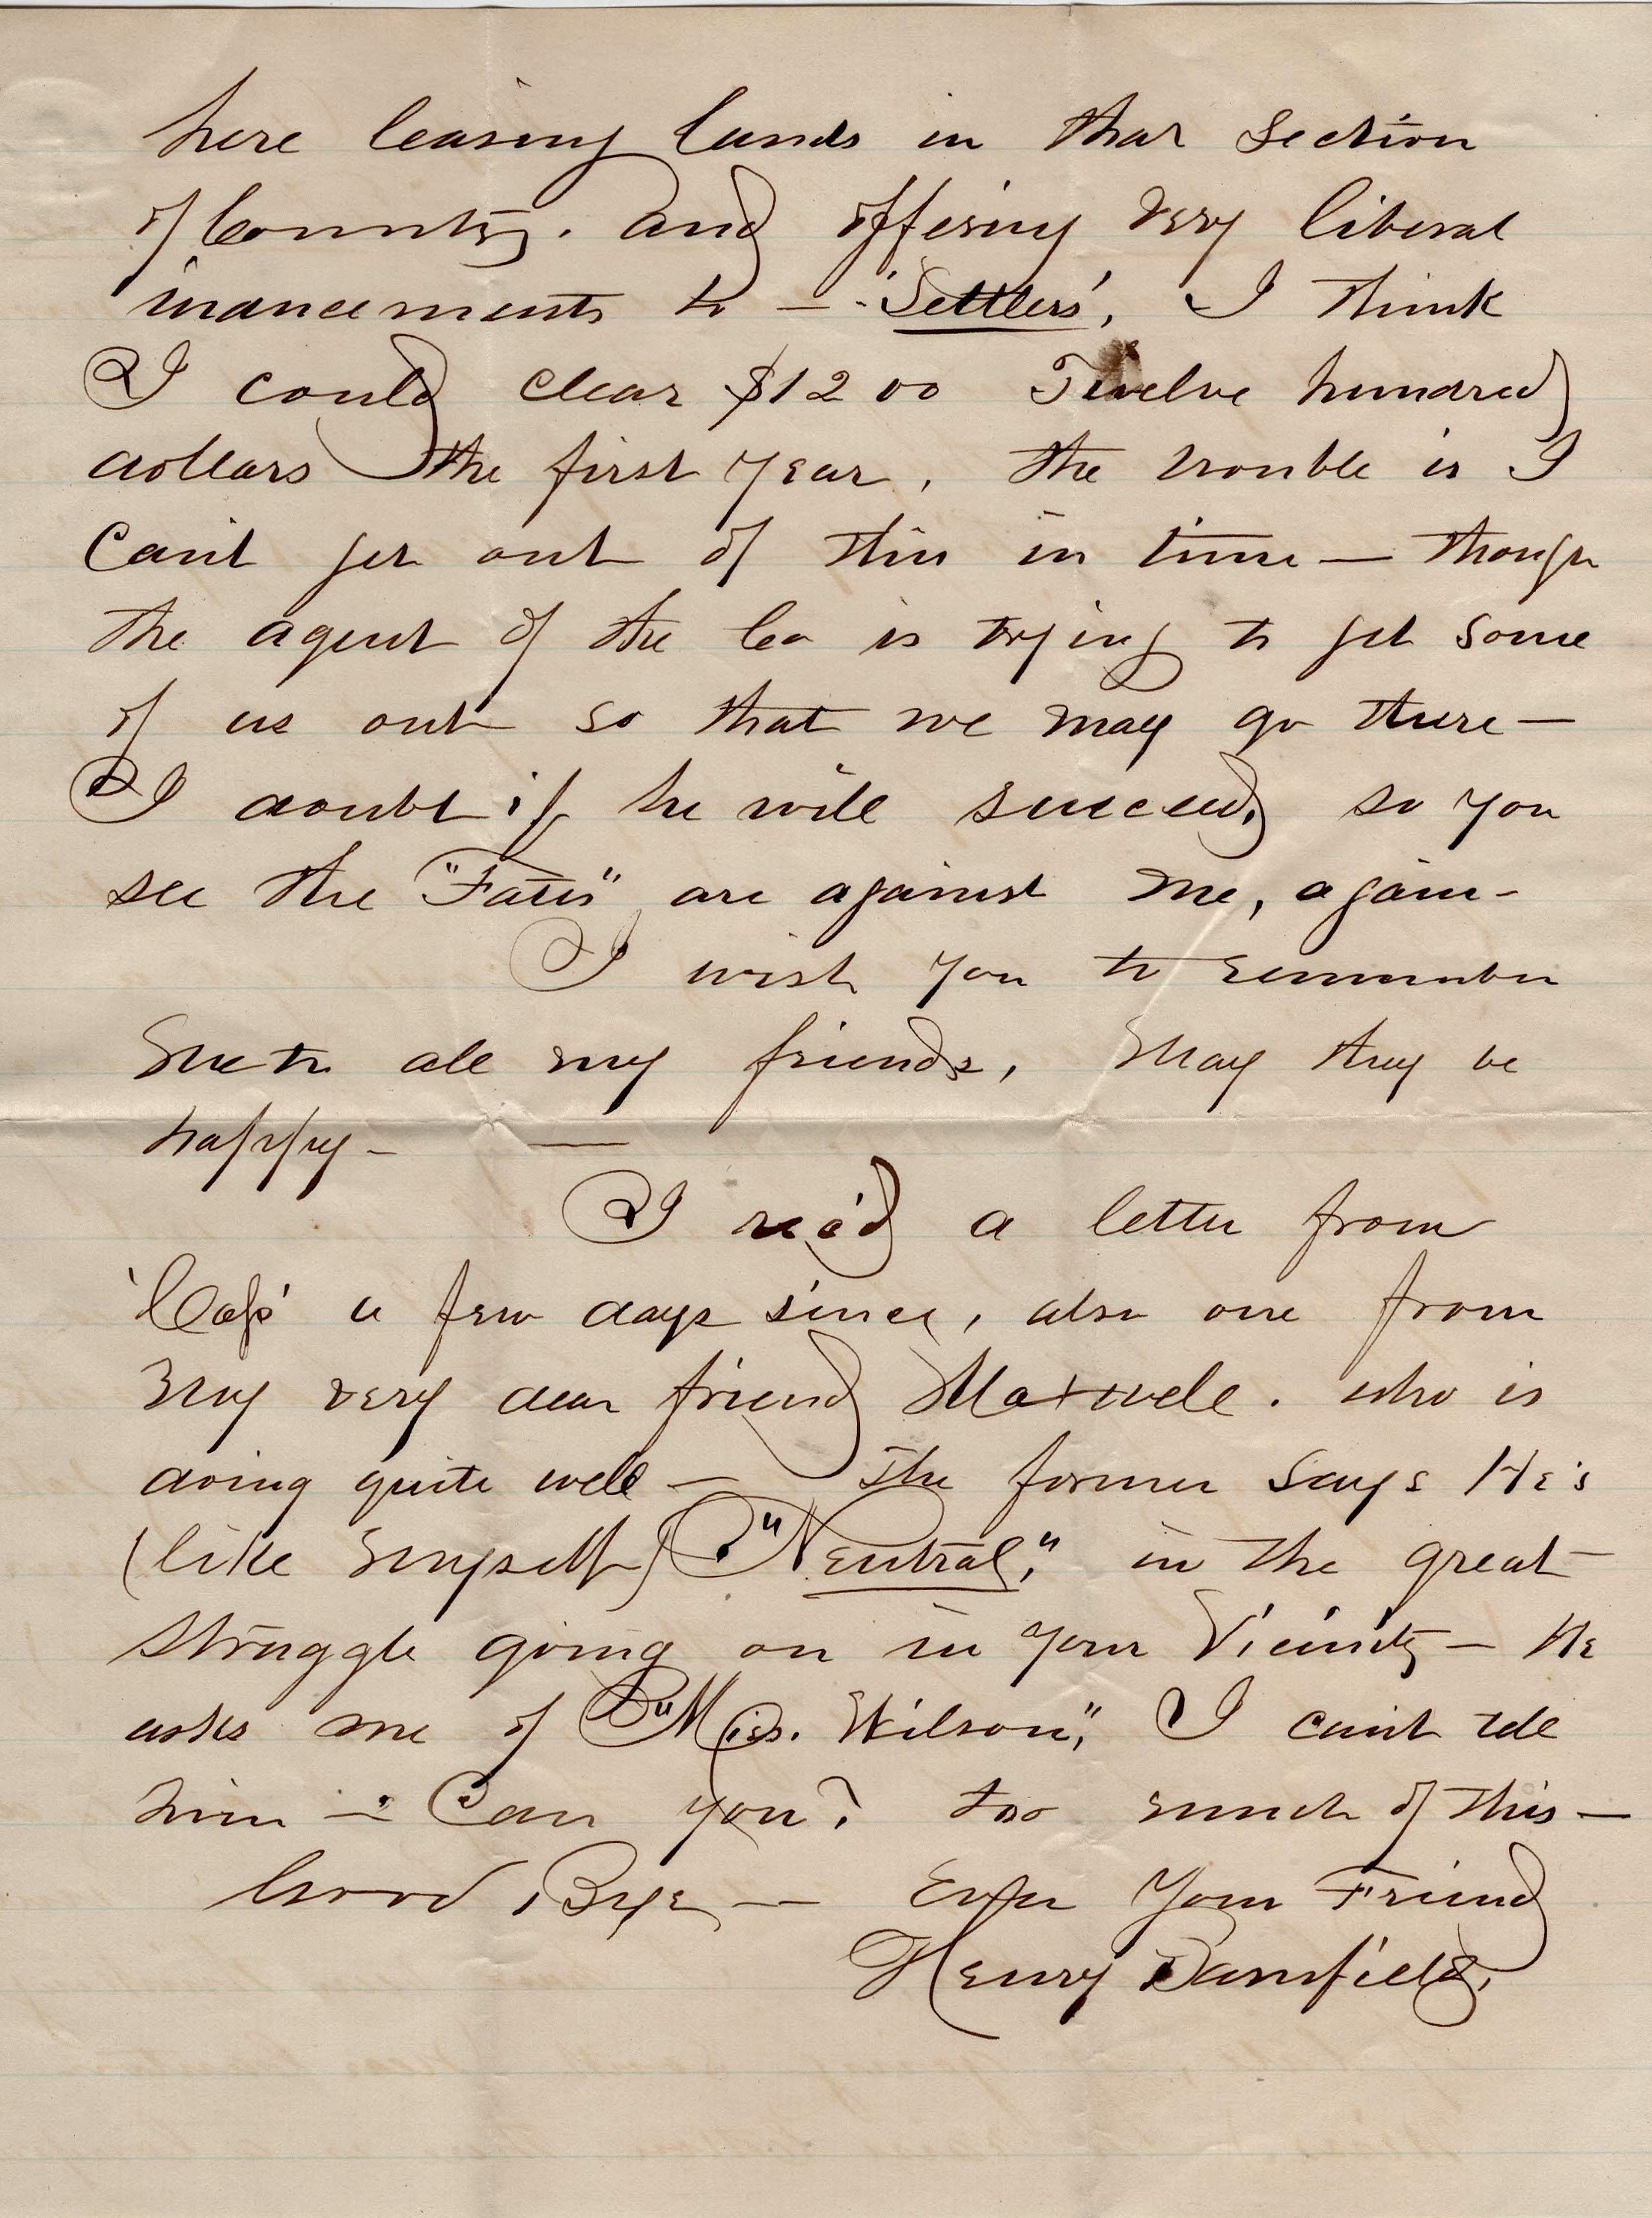 here leasing lands in that section
of Country. and offering very liberal
inducements to — 'Settlers', I think
I could clear $1200 Twelve hundred
dollars the first year, the trouble is I
Can't get out of this in time — though
the agent of the Co is trying to get some
of us out so that we may go there —
I doubt if he will succeed, so you
see the "Fates" are against me, again -
I wish you to remember
me to all my friends, May they be
happy - —
I rec'd a letter from
'Cap' a few days since, also one from
my very dear friend Maxwell. who is
doing quite well — The former says He's
(like myself) "Neutral," in the great
struggle going on in your Vicinity — He
asks me of "Miss. Wilson", I can't tell
him — Can you? too much of this —
Good Bye — Ever Your Friend
Henry